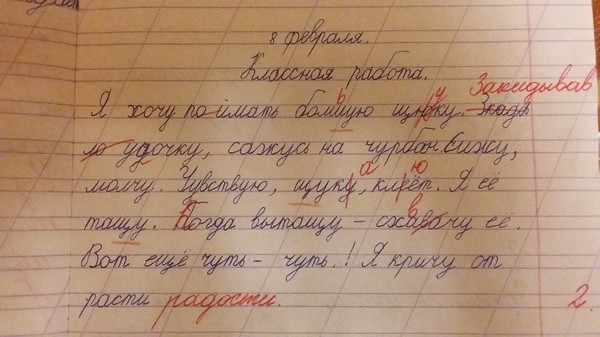 8 февраля.
Классная работа.
Закидывав
Я хочу поймать болшую щюку. Закда
ю удочку, сажусь на чурбан. Сижу,
молчу. Чувствую, щуку, клеёт. Я её
тащу. Когда вытащу – схавачу её.
Вот ещё чуть – чуть.! Я кричу от
расти радости.
2.